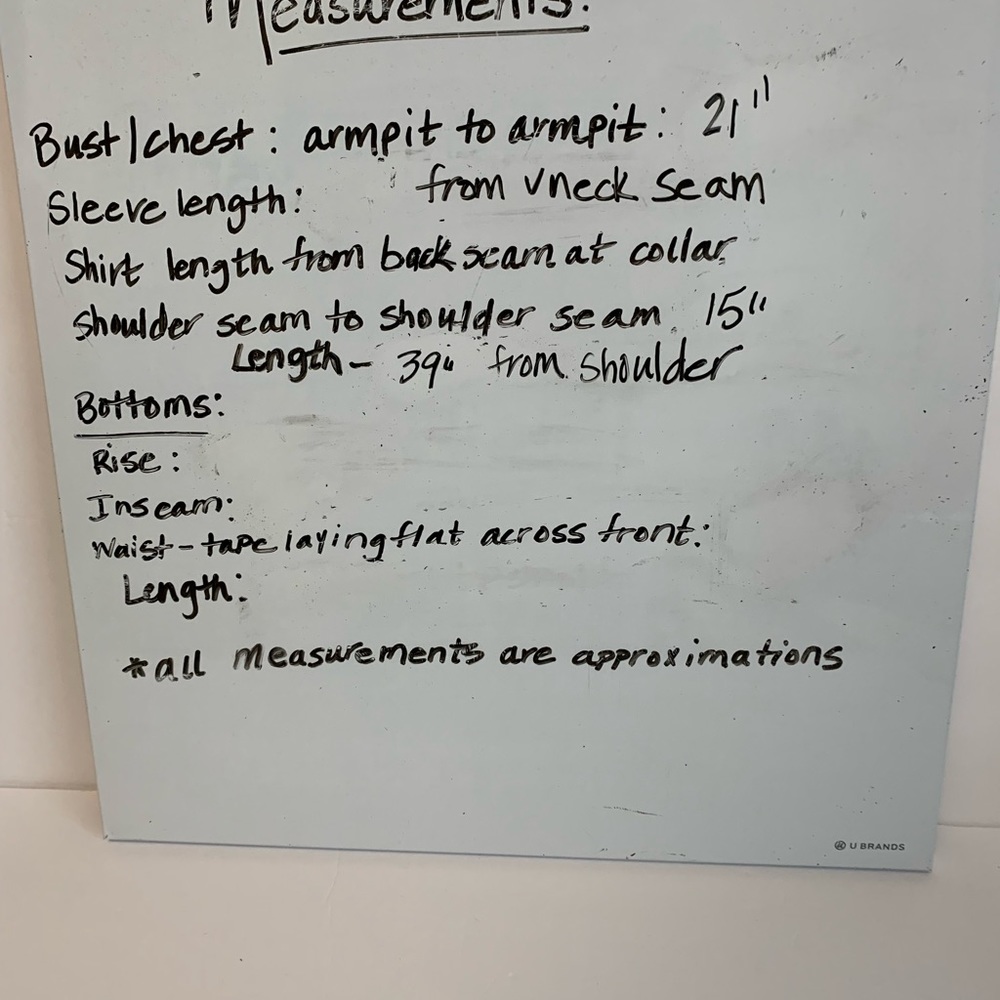 Measurements:
Bust/chest: armpit to armpit: 21"
Sleeve length: from vneck seam
Shirt length from back seam at collar
shoulder seam to shoulder seam 15"
Length- 39" from shoulder
Bottoms:
Rise:
Inseam:
Waist-tape laying flat across front:
Length:
*all measurements are approximations
U BRANDS